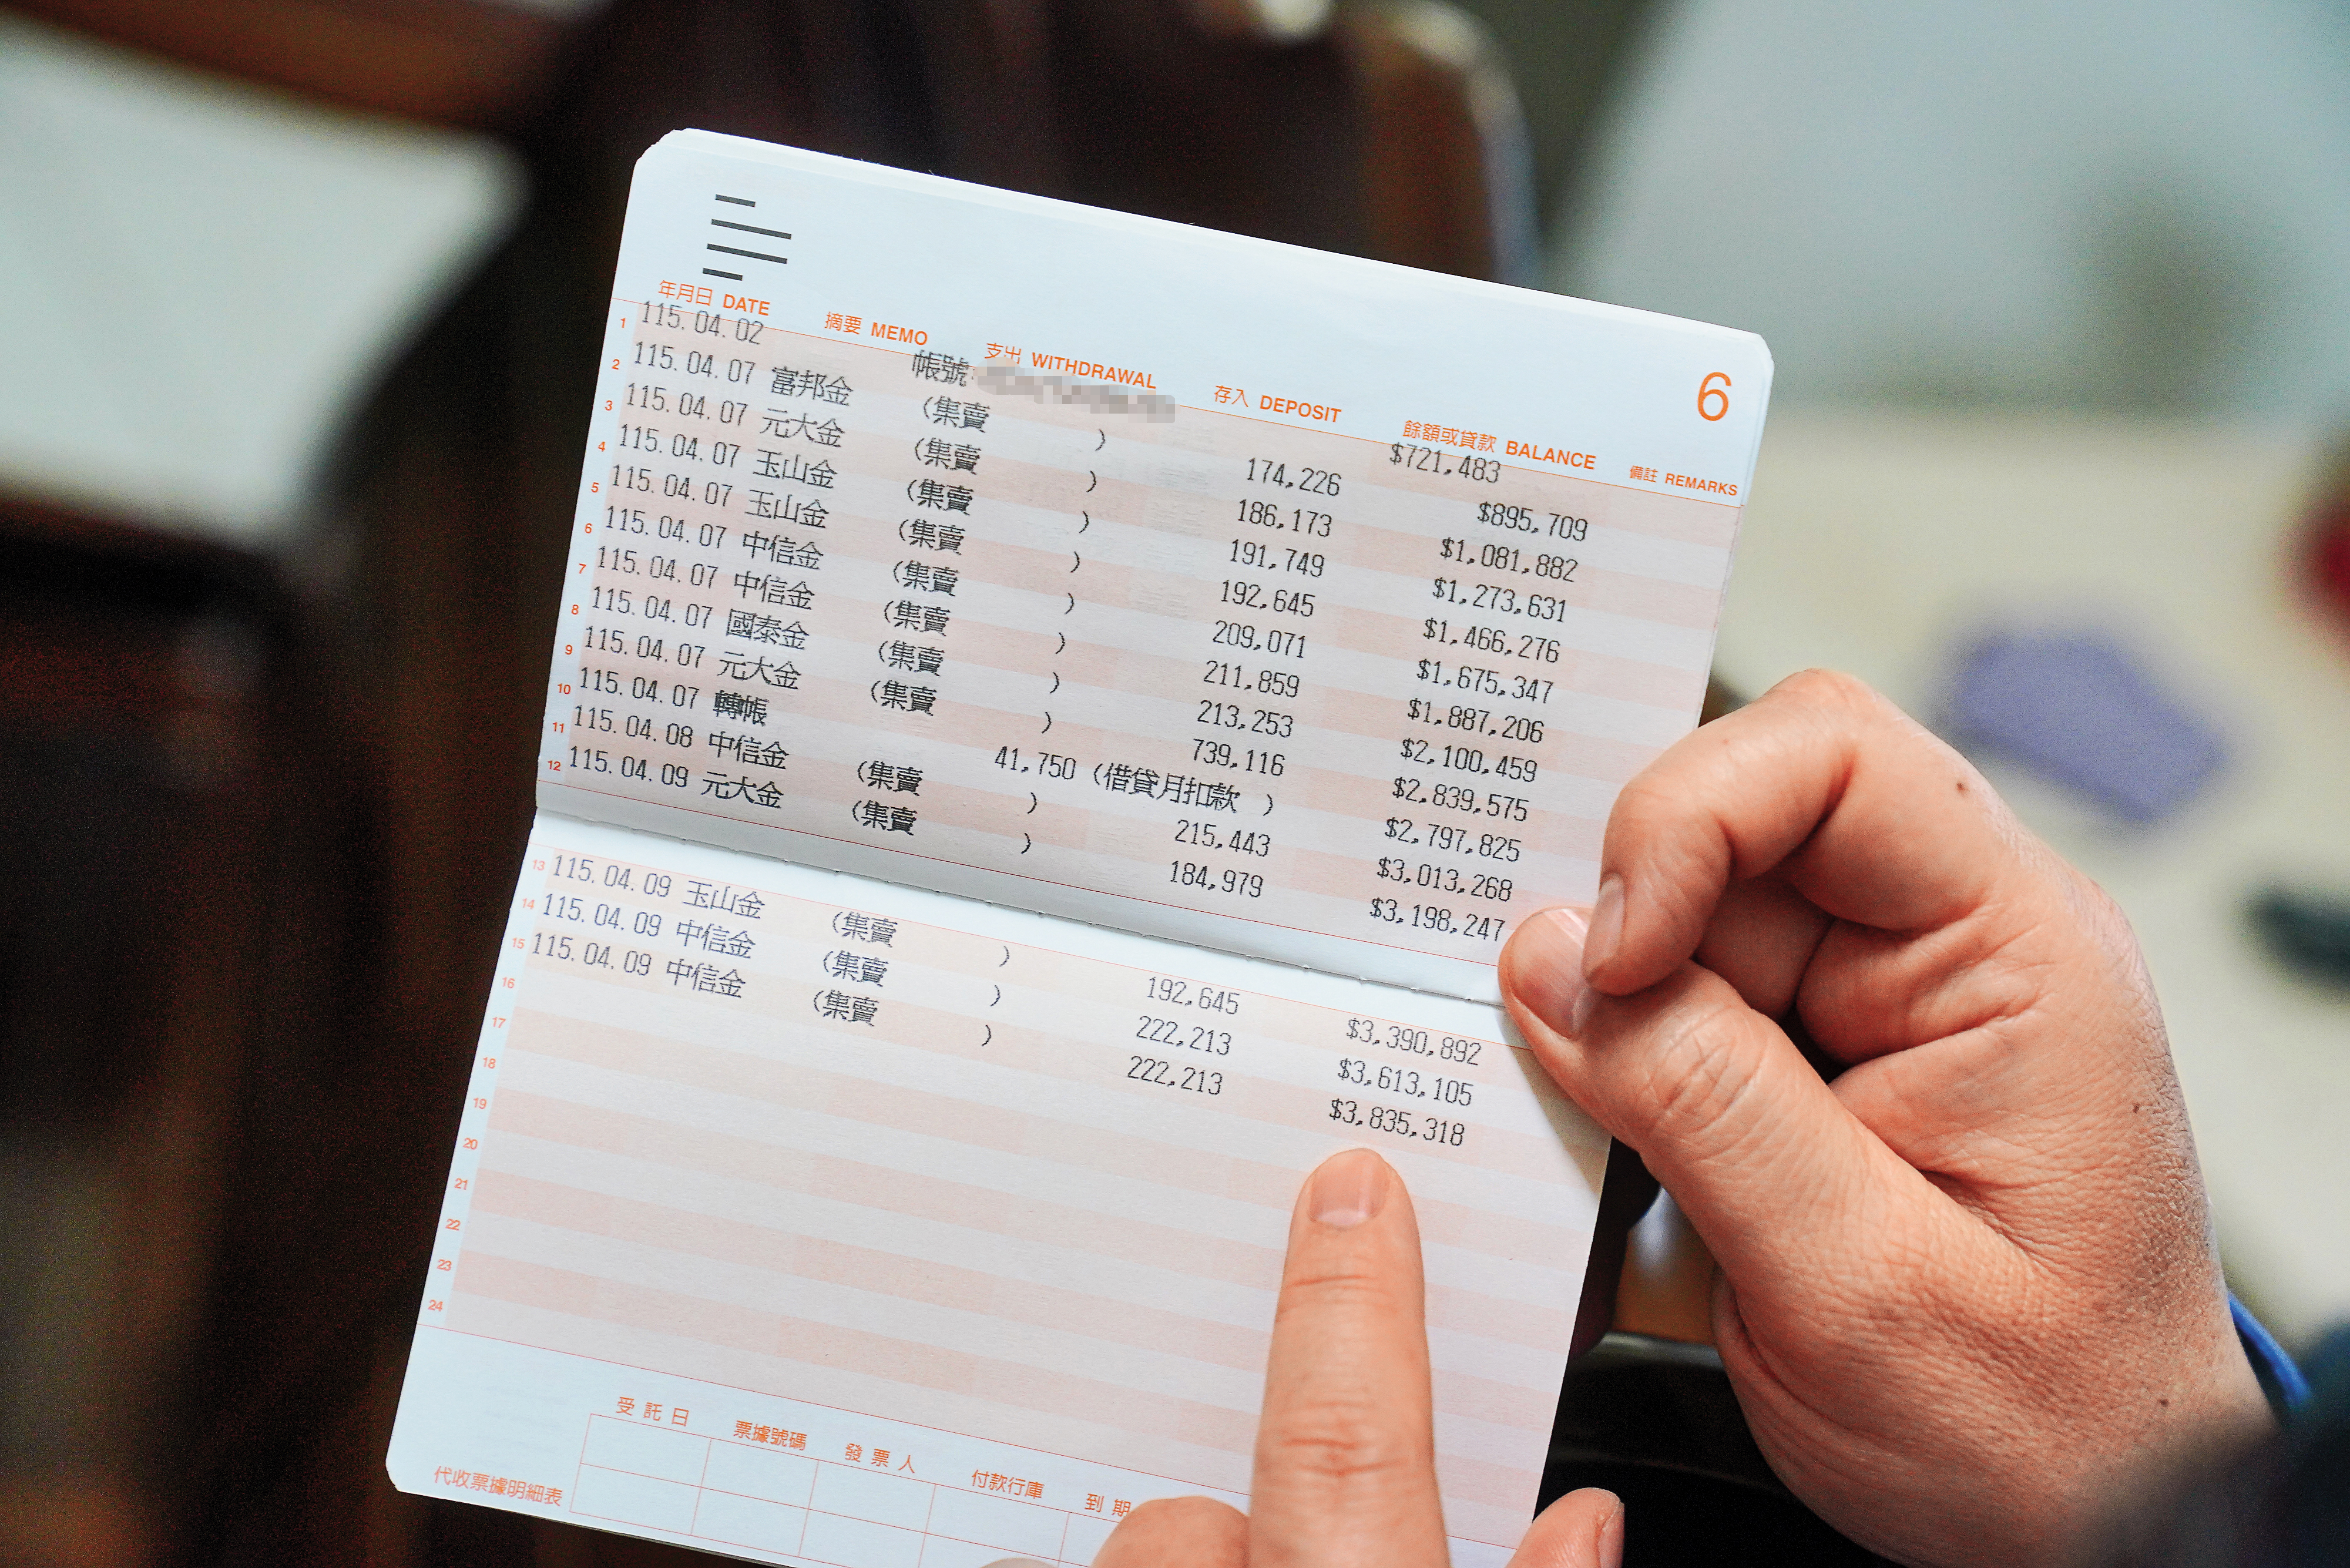 6
年月日 DATE 摘要 MEMO 支出 WITHDRAWAL 存入 DEPOSIT 餘額或貸款 BALANCE 備註 REMARKS
1 115.04.02 帳號: $721,483
2 115.04.07 富邦金 (集賣 ) 174,226 $895,709
3 115.04.07 元大金 (集賣 ) 186,173 $1,081,882
4 115.04.07 玉山金 (集賣 ) 191,749 $1,273,631
5 115.04.07 玉山金 (集賣 ) 192,645 $1,466,276
6 115.04.07 中信金 (集賣 ) 209,071 $1,675,347
7 115.04.07 中信金 (集賣 ) 211,859 $1,887,206
8 115.04.07 國泰金 (集賣 ) 213,253 $2,100,459
9 115.04.07 元大金 (集賣 ) 739,116 $2,839,575
10 115.04.07 轉帳 41,750 (借貸月扣款 ) $2,797,825
11 115.04.08 中信金 (集賣 ) 215,443 $3,013,268
12 115.04.09 元大金 (集賣 ) 184,979 $3,198,247
13 115.04.09 玉山金 (集賣 ) 192,645 $3,390,892
14 115.04.09 中信金 (集賣 ) 222,213 $3,613,105
15 115.04.09 中信金 (集賣 ) 222,213 $3,835,318
16
17
18
19
20
21
22
23
24
代收票據明細表 受託日 票據號碼 發票人 付款行庫 到期